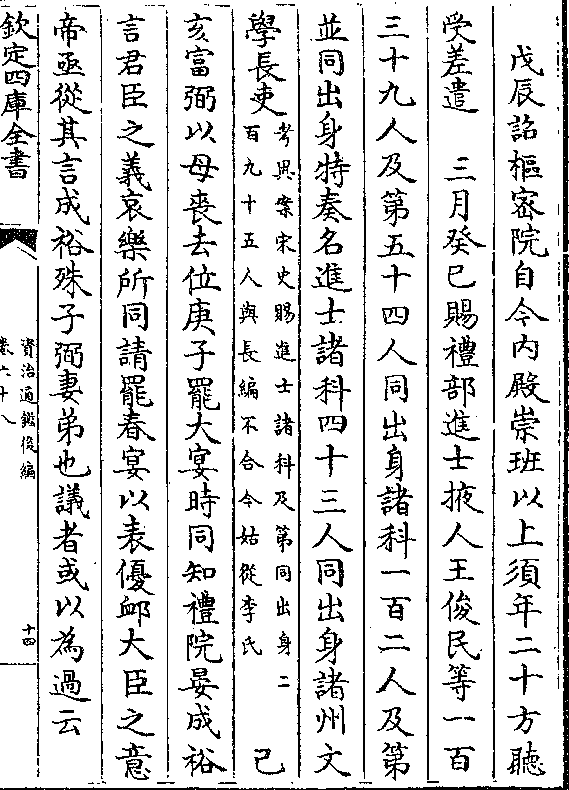 戊辰詔樞密院自今内殿崇班以上須年二十方聽
受差遣　三月癸巳賜禮部進士掖人王俊民等一百
三十九人及第五十四人同出身諸科一百二人及第
並同出身特奏名進士諸科四十三人同出身諸州文
學長吏
考異案宋史賜進士諸科及第同出身二
百九十五人與長編不合今姑從李氏
己
亥富弼以母喪去位庚子罷大宴時同知禮院晏成裕
言君臣之義哀樂所同請罷春宴以表優䘏大臣之意
帝亟從其言成裕殊子弼妻弟也議者或以為過云
欽定四庫全書
資治通鑑後編
卷六十八
十四